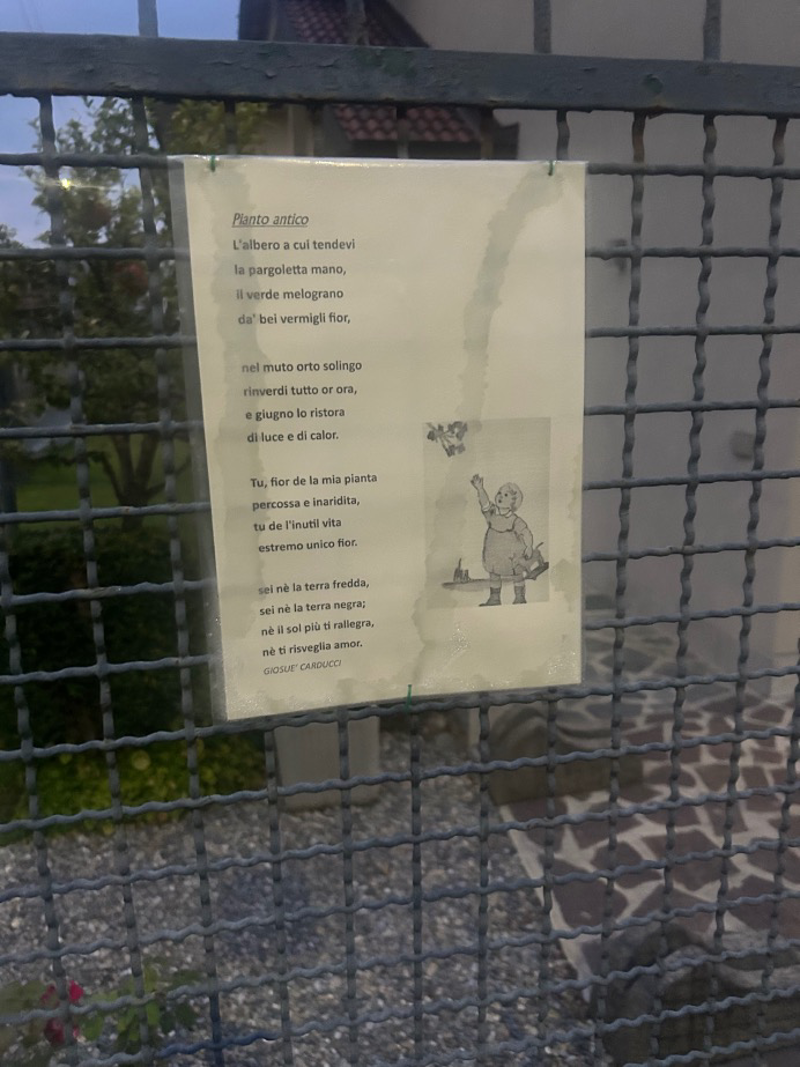 Pianto antico
L'albero a cui tendevi
la pargoletta mano,
il verde melograno
da' bei vermigli fior,
nel muto orto solingo
rinverdì tutto or ora,
e giugno lo ristora
di luce e di calor.
Tu, fior de la mia pianta
percossa e inaridita,
tu de l'inutil vita
estremo unico fior.
sei nè la terra fredda,
sei nè la terra negra;
nè il sol più ti rallegra,
nè ti risveglia amor.
GIOSUE' CARDUCCI